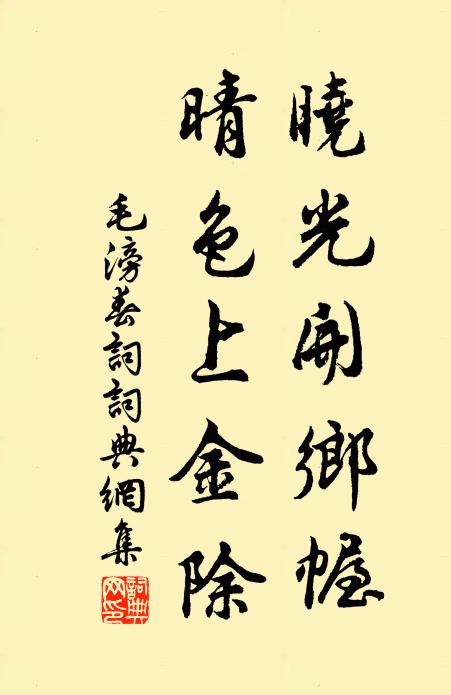 曉光開鄉幄
晴色上金除
毛滂春詞詞典網集
詞典网印